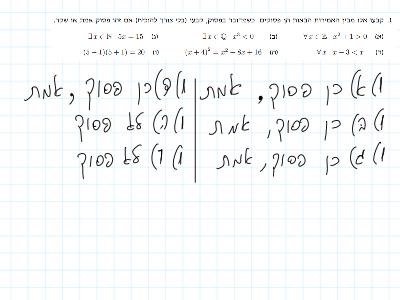 1. קבעו אלו מבין האמירות הבאות הן פסוקים. כשמדובר בפסוק, קבעו (בלי צורך להוכיח) אם זהו פסוק אמת או שקר.
(א) ∀x ∈ ℤ x² + 1 > 0 (ב) ∃x ∈ ℚ x² < 0 (ג) ∃x ∈ ℕ 5x = 15
∀x x − 3 < x (x + 4)² = x² + 8x + 16 (5 − 1)(5 + 1) = 20
1) א) כן פסוק, אמת
1) ב) כן פסוק, אמת
1) ג) כן פסוק, אמת
כן פסוק, אמת
1) ה) לא פסוק
1) ד) לא פסוק